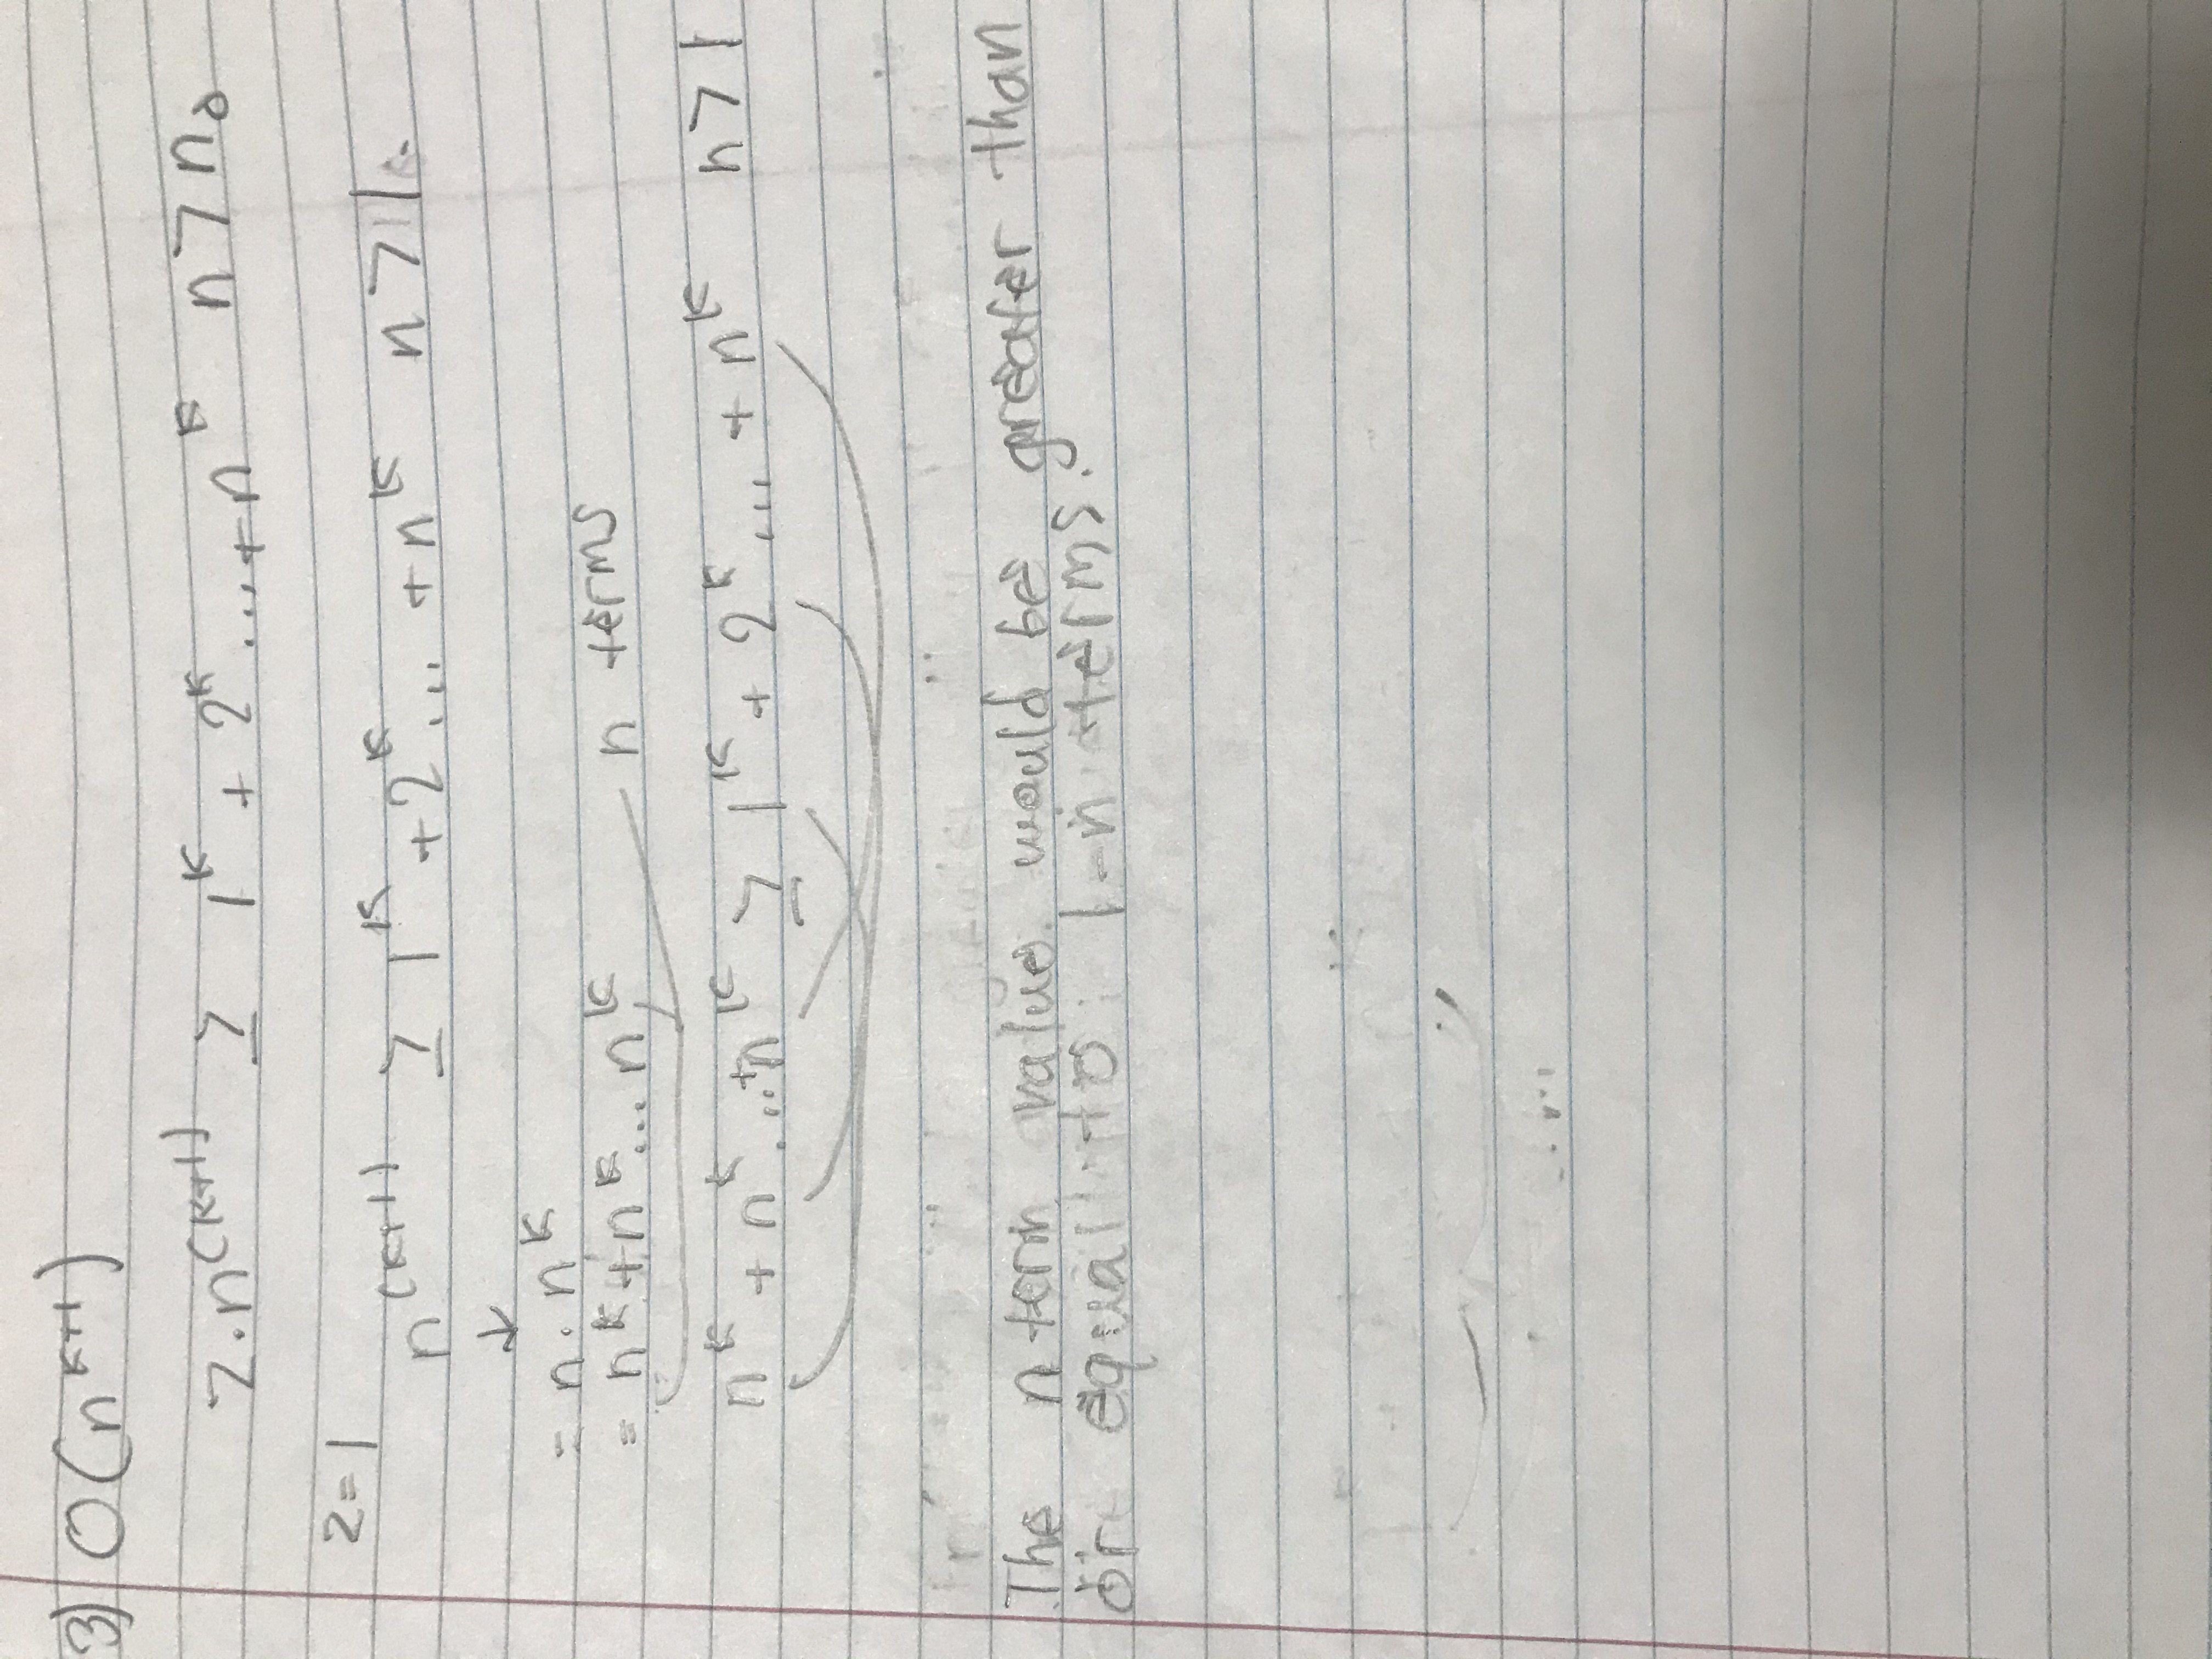 3) O(n^(k+1))
z·n^(k+1) ≥ 1^k + 2^k ... + n^k n > n₀
z=1
n^(k+1) ≥ 1^k + 2^k ... + n^k n > 1
↓
= n · n^k
= n^k + n^k ... n^k n terms
n^k + n^k ... + n^k ≥ 1^k + 2^k ... + n^k n > 1
The n term value would be greater than
or equal to 1-n terms.